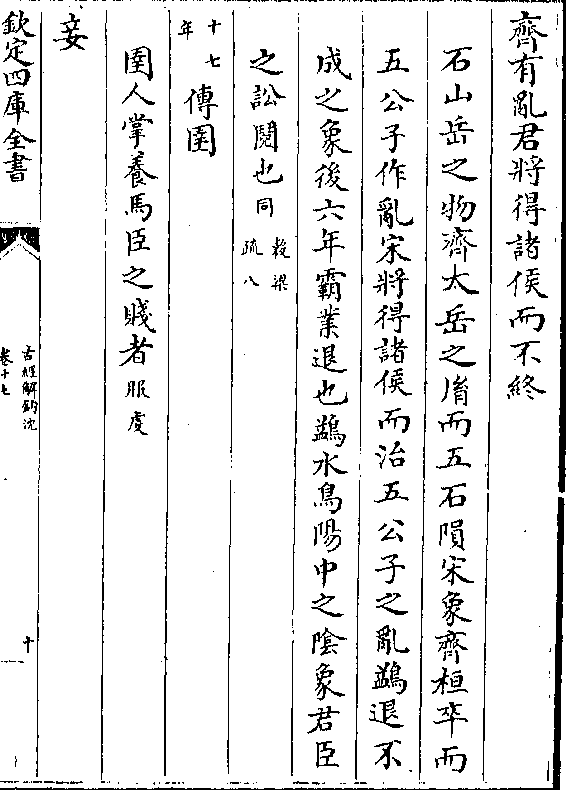 齊有亂君將得諸侯而不終
石山岳之物齊大岳之胤而五石隕宋象齊桓卒而
五公子作亂宋將得諸侯而治五公子之亂鷁退不
成之象後六年霸業退也鷁水鳥陽中之陰象君臣
之訟鬩也同穀梁疏八
十七年傳圉
圉人掌養馬臣之賤者服虔
妾
欽定四庫全書
古經解鉤沈
卷十七
十